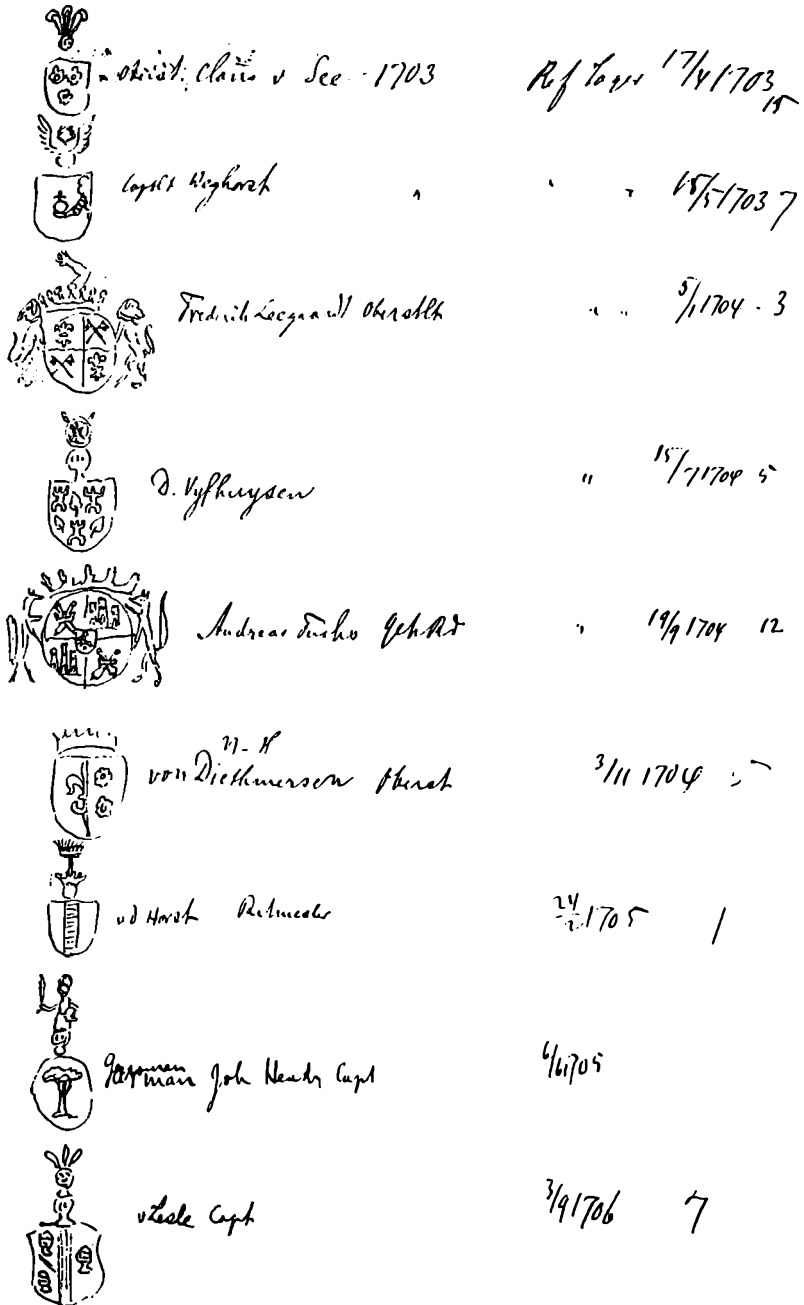 Claus v See 1703 Ref Lager 17/4 1703 15
Captlt Weghorst " " " 18/5 1703 7
Fredrik Leegaardt Oberstlt " " 5/1 1704 - 3
D. Vyfhuysen " 15/7 1704 5
Andreas Fusho Geh Rd " 19/9 1704 12
von Diethmersen Oberst 3/11 1704
v d Horst Ritmester 24/2 1705 1
Garman Joh Hendr Capt 6/6 1705
v Lesle Capt 3/9 1706 7